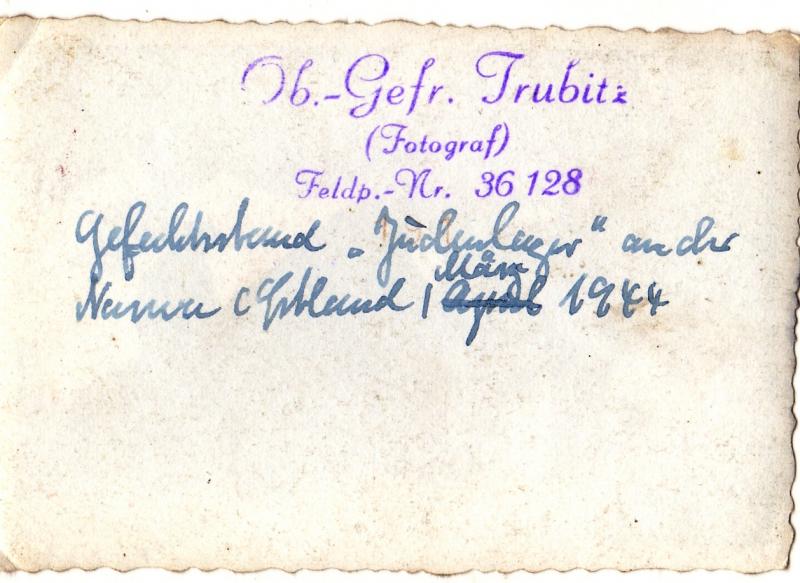 Ob.-Gefr. Trubitz
(Fotograf)
Feldp.-Nr. 36 128
Gefechtsstand „Judenlager“ an der
März
Narwa (Estland) April 1944